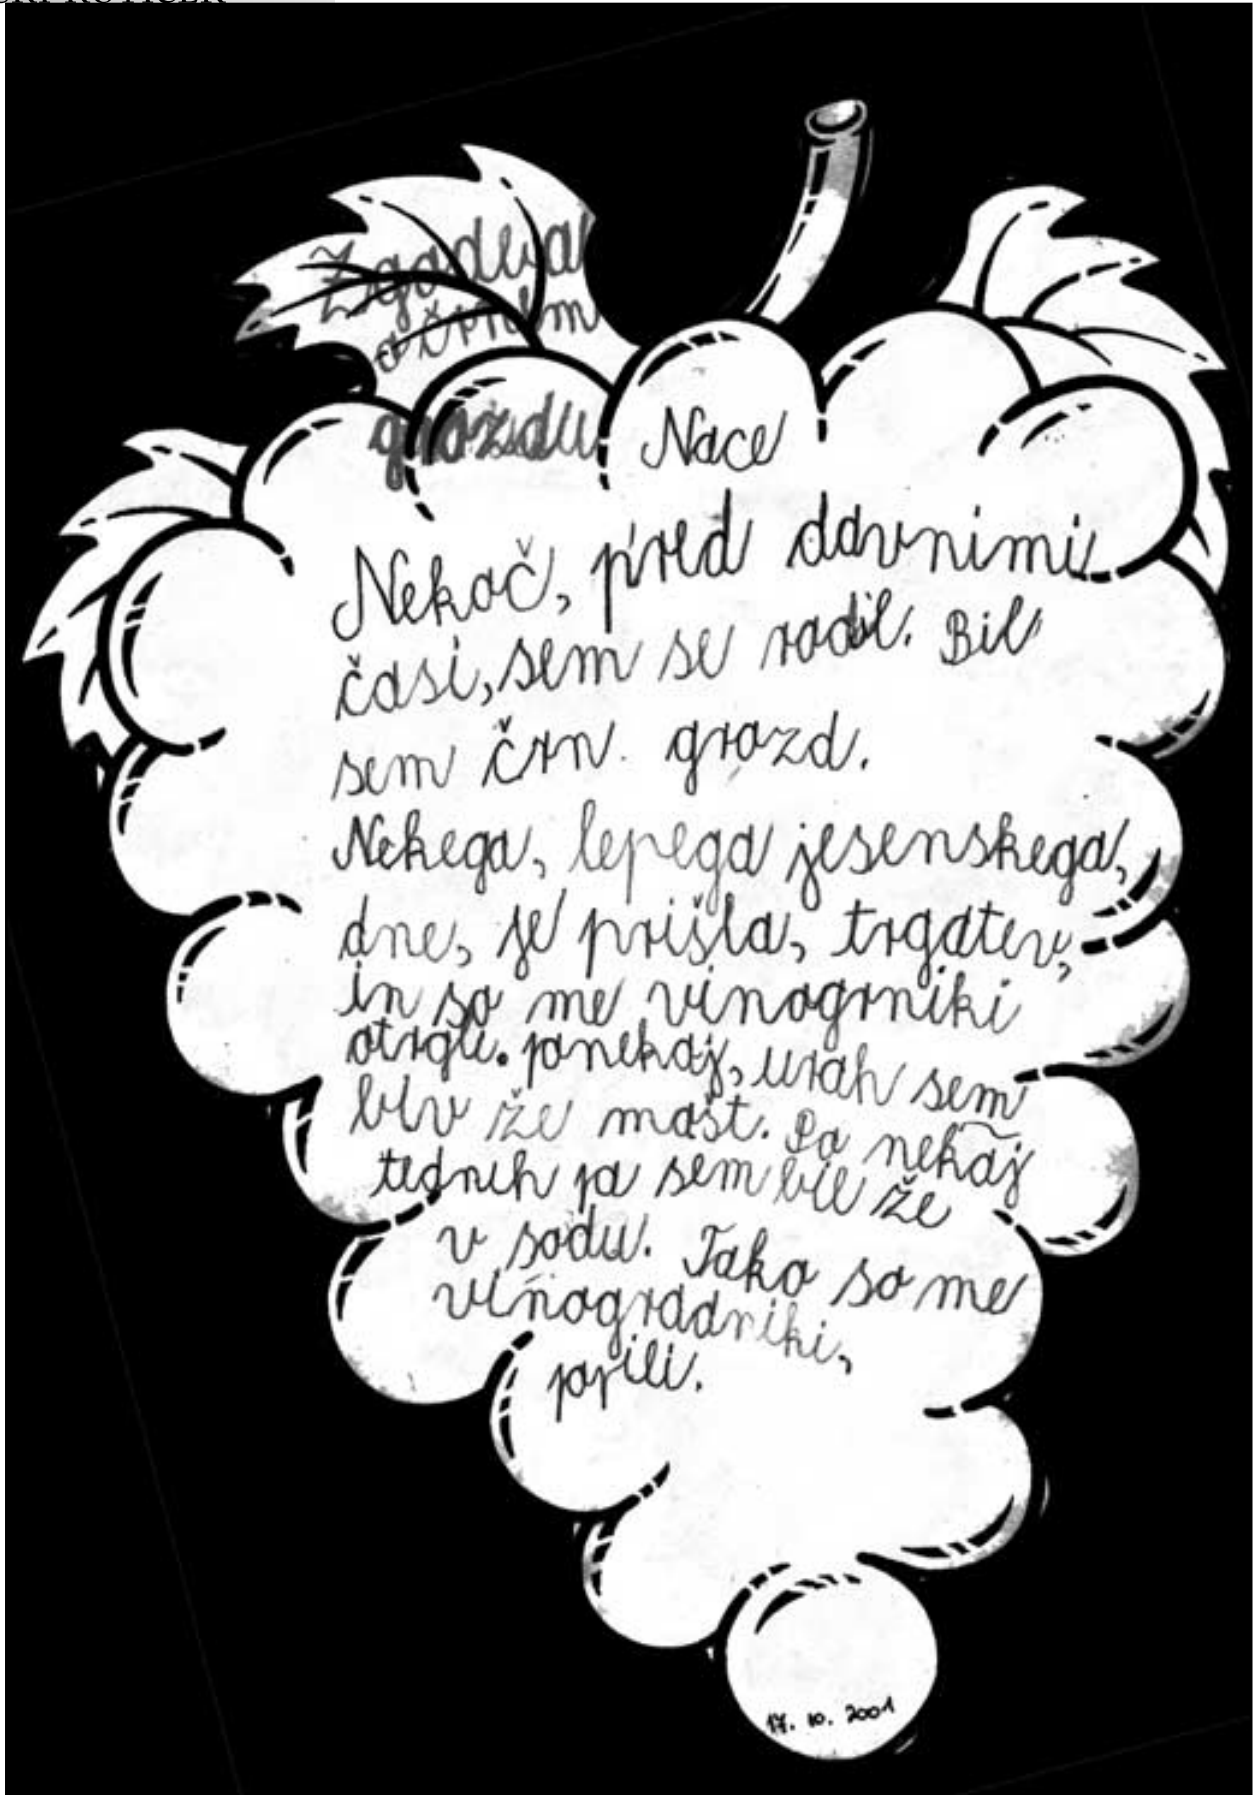 Zgodba
o črnem
grozdu
Nace
Nekoč, pred davnimi
časi, sem se rodil. Bil
sem črn grozd.
Nekega, lepega jesenskega,
dne, je prišla, trgatev,
in so me vinogrniki
otrgli. ponekaj, urah sem
bil že mošt. Po nekaj
tednih pa sem bil že
v sodu. Tako so me
vinogradniki,
popili.
17. 10. 2001